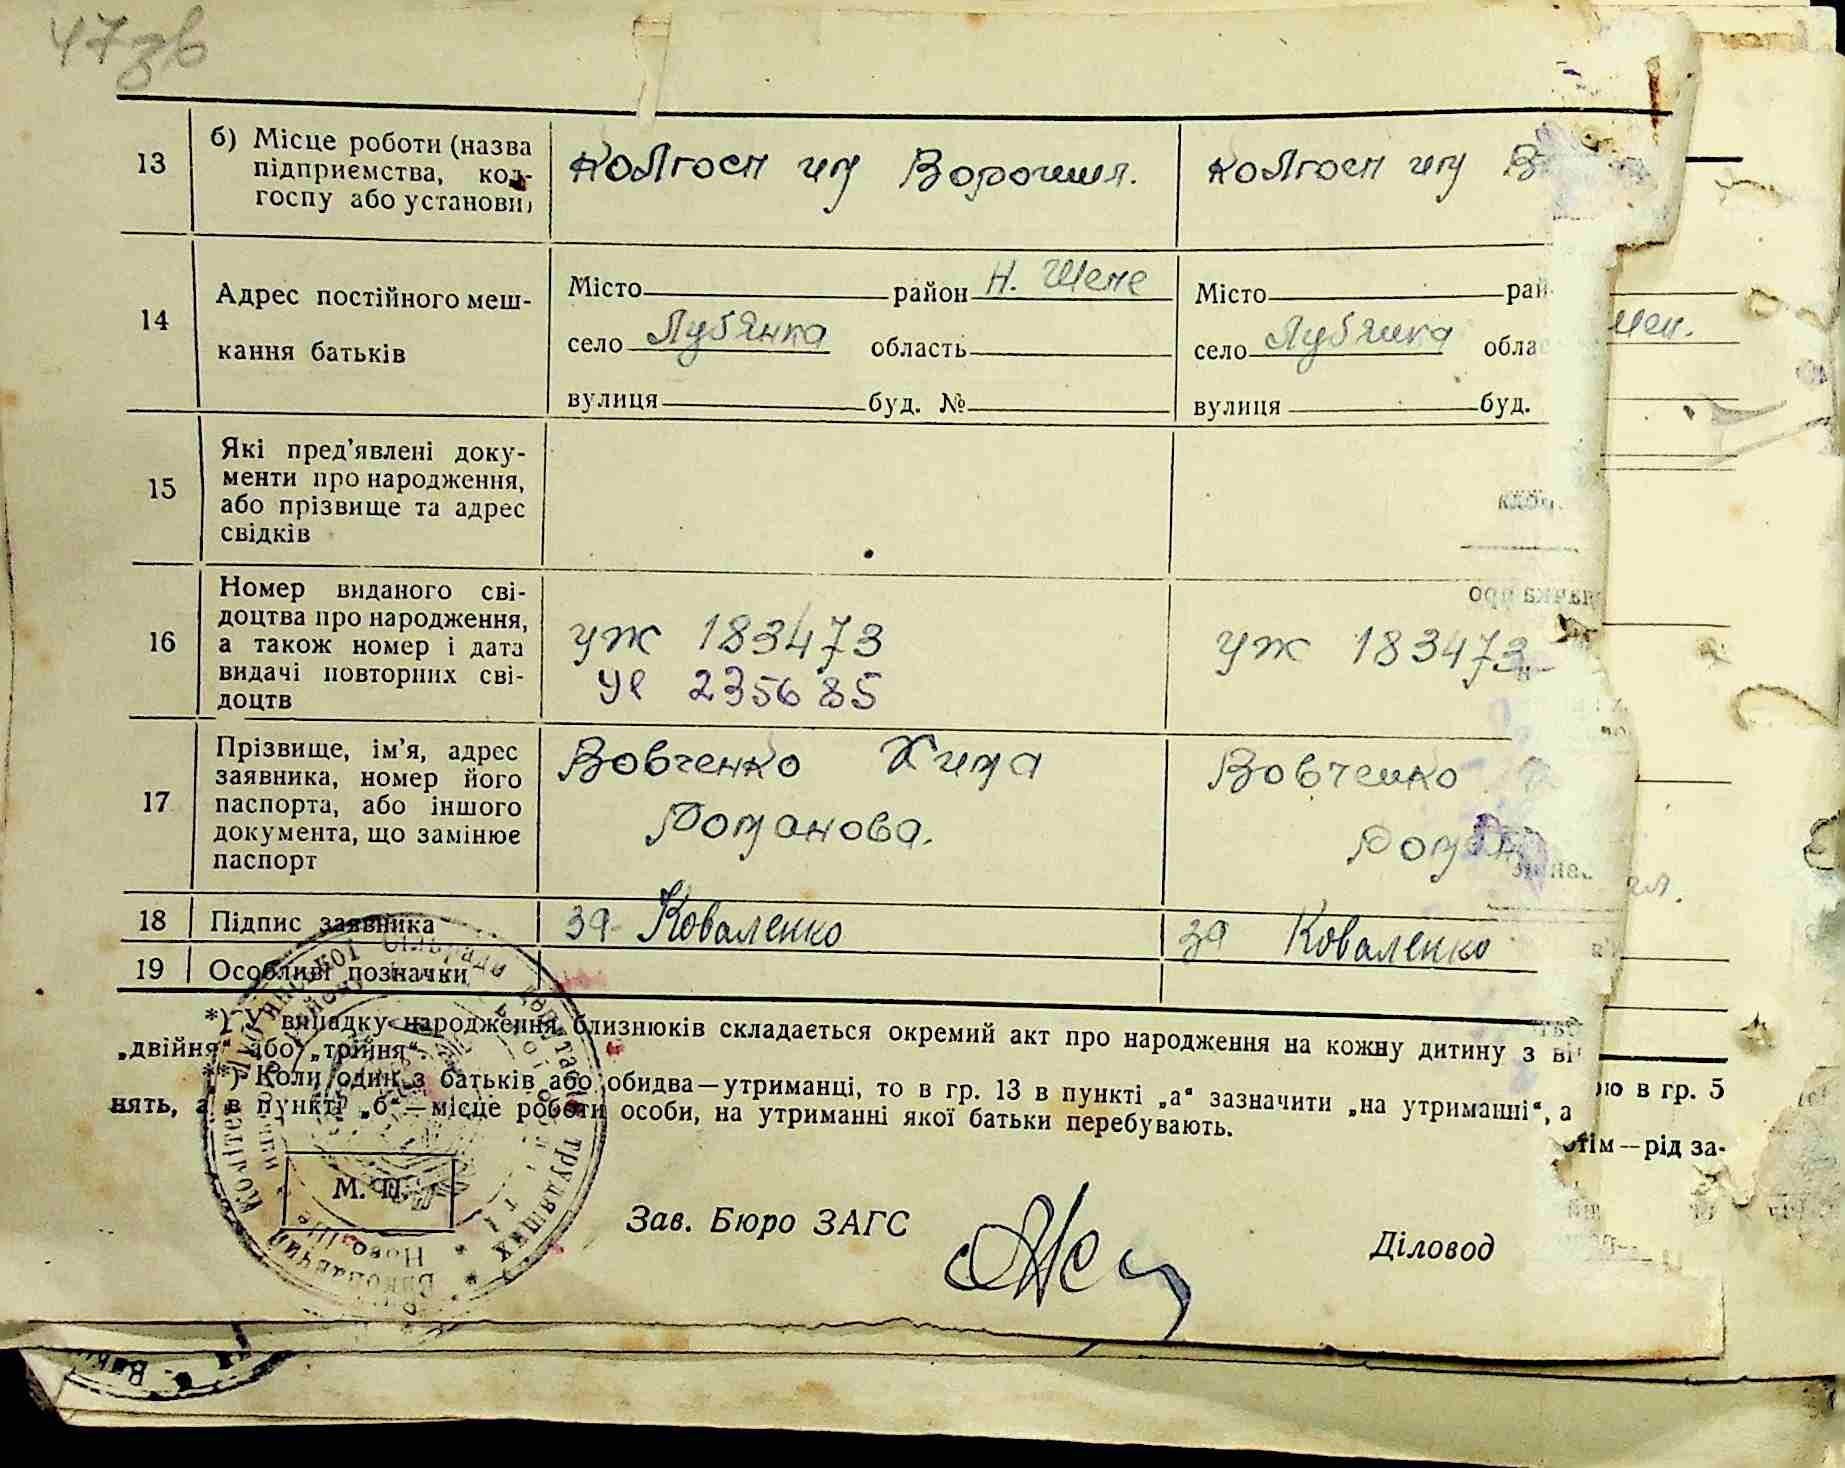 47зв
13 б) Місце роботи (назва колгосп им Ворошил. колгосп им В
підприємства, кол-
госпу або установи)
14 Адрес постійного меш- Місто район Н. Шепе Місто рай
кання батьків село Лубянка область село Лубянка обла
вулиця буд. № вулиця буд.
15 Які пред'явлені доку-
менти про народження,
або прізвище та адрес
свідків
16 Номер виданого сві-
доцтва про народження,
а також номер і дата уж 183473 уж 183473
видачі повторних сві- 235685
доцтв
17 Прізвище, ім'я, адрес Вовченко Хима Вовченко
заявника, номер його
паспорта, або іншого Романова. Ром
документа, що замінює
паспорт
18 Підпис заявника за Коваленко за Коваленко
19 Особливі позначки
*) У випадку народження близнюків складається окремий акт про народження на кожну дитину з ві
„двійня“ або „трійня“.
**) Коли один з батьків або обидва—утриманці, то в гр. 13 в пункті „а“ зазначити „на утриманні“, а
ою в гр. 5
нять, а в пункті „б“—місце роботи особи, на утриманні якої батьки перебувають.
отім—рід за-
М. П.
Зав. Бюро ЗАГС Діловод